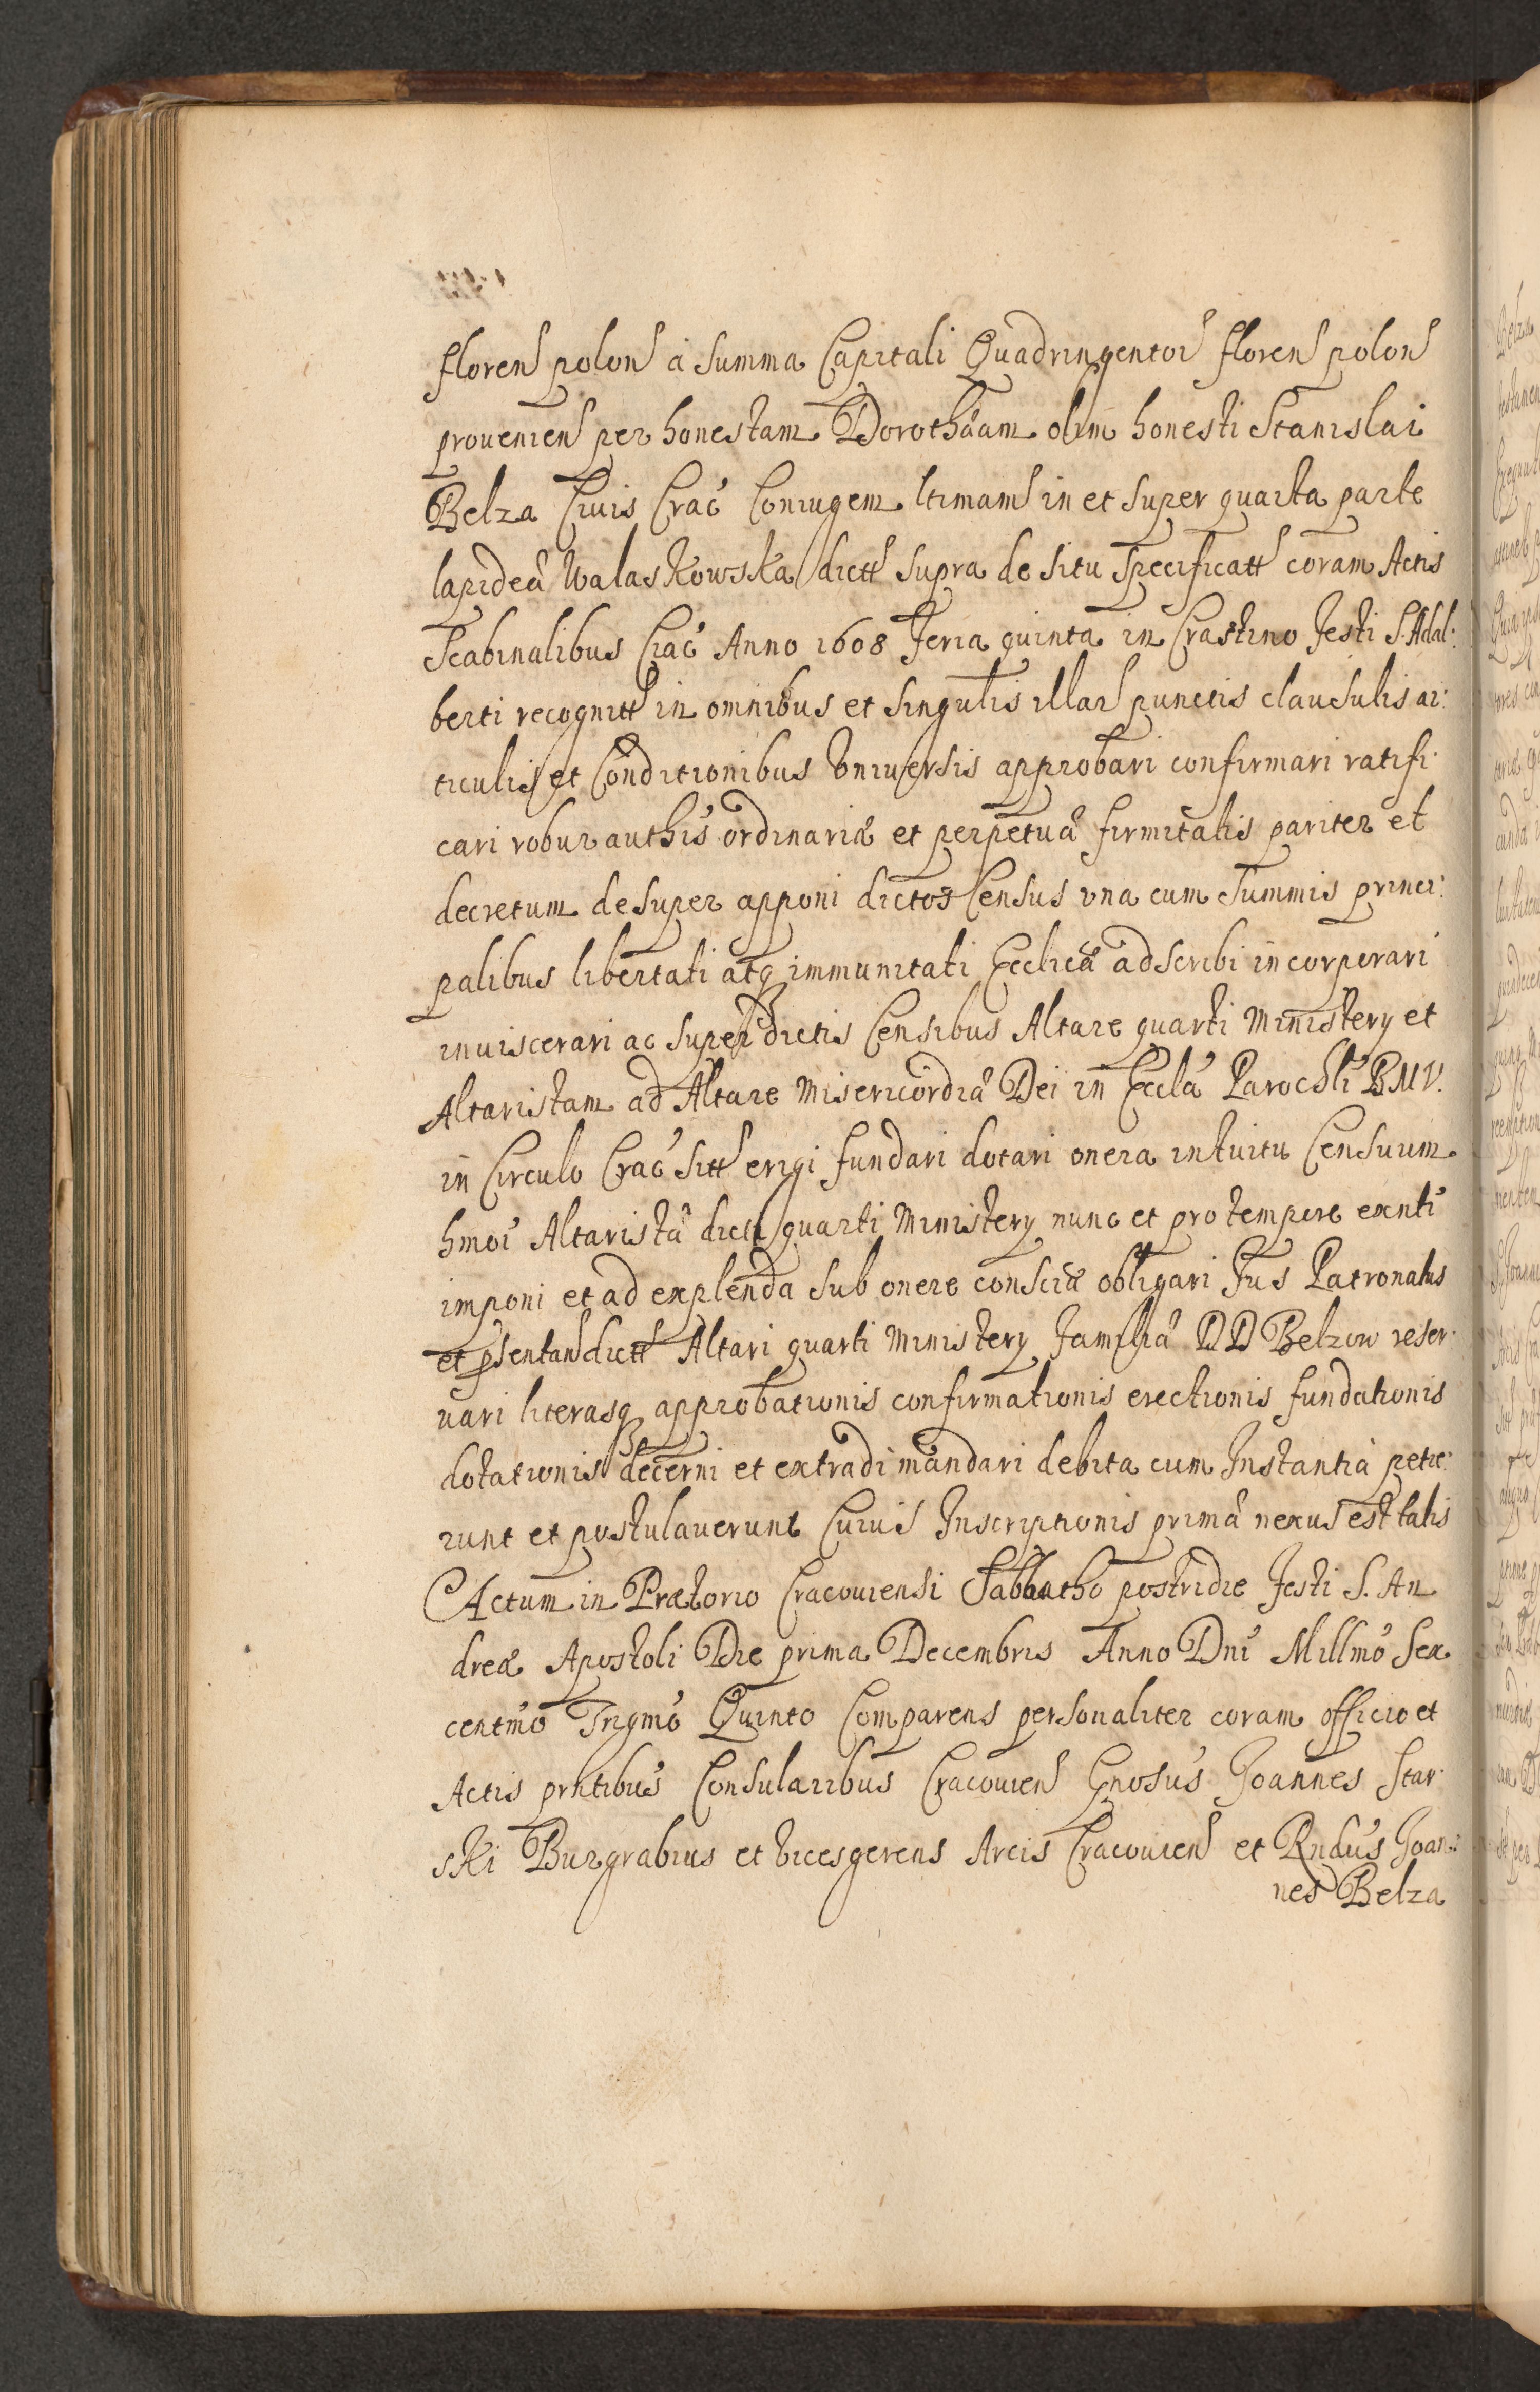 floren polon à summa Capitali Quadringentor floren polon
prouenien per honestam Dorothæam olim honesti Stanislai
Belza Ciuis Crac̃ Coniugem ltimam in et super quarta parte
lapideæ Walaskowska dictt supra de situ specificatt coram Actis
Scabinalibus Crac̃ Anno 1608 Feria quinta in Crastino Festi S. Adal:
berti recognitt in omnibus et singulis illar punctis clausulis ar:
ticulis et Conditionibus vniuersis approbari confirmari ratifi:
cari robur authis ordinariæ et perpetuæ firmitatis pariter et
decretum desuper apponi dictos Census vna cum Summis princi:
palibus libertati atq immunitati Ecclicæ adscribi incorporari
inuiscerari ac super dictis Censibus Altare quarti Ministery et
Altaristam ad Altare Misericordiæ Dei in Eccla Parochli BMV.
in Circulo Crac̃ sitt erigi fundari dotari onera intuitu Censuum
hmoi Altaristæ dictt quarti Ministery nunc et pro tempore exnti
imponi et ad explenda sub onere consciæ obligari Jus Patronatus
et psentan dictt Altari quarti Ministery Familiæ DD Belzow reser:
uari literasq approbationis confirmationis erectionis fundationis
dotationis decerni et extradi mandari debita cum Instantia petie:
runt et postulauerunt Cuius Inscriptionis primæ nexus est talis
Actum in Prætorio Cracouiensi Sabbatho postridie Festi S. An
dreæ Apostoli Die prima Decembris Anno Dni Millmo Sex
centmo Trigmo Quinto Comparens personaliter coram officio et
Actis prntibus Consularibus Cracouien Gnosus Joannes Star:
ski Burgrabius et Vicesgerens Arcis Cracouien et Rndus Joan:
nes Belza